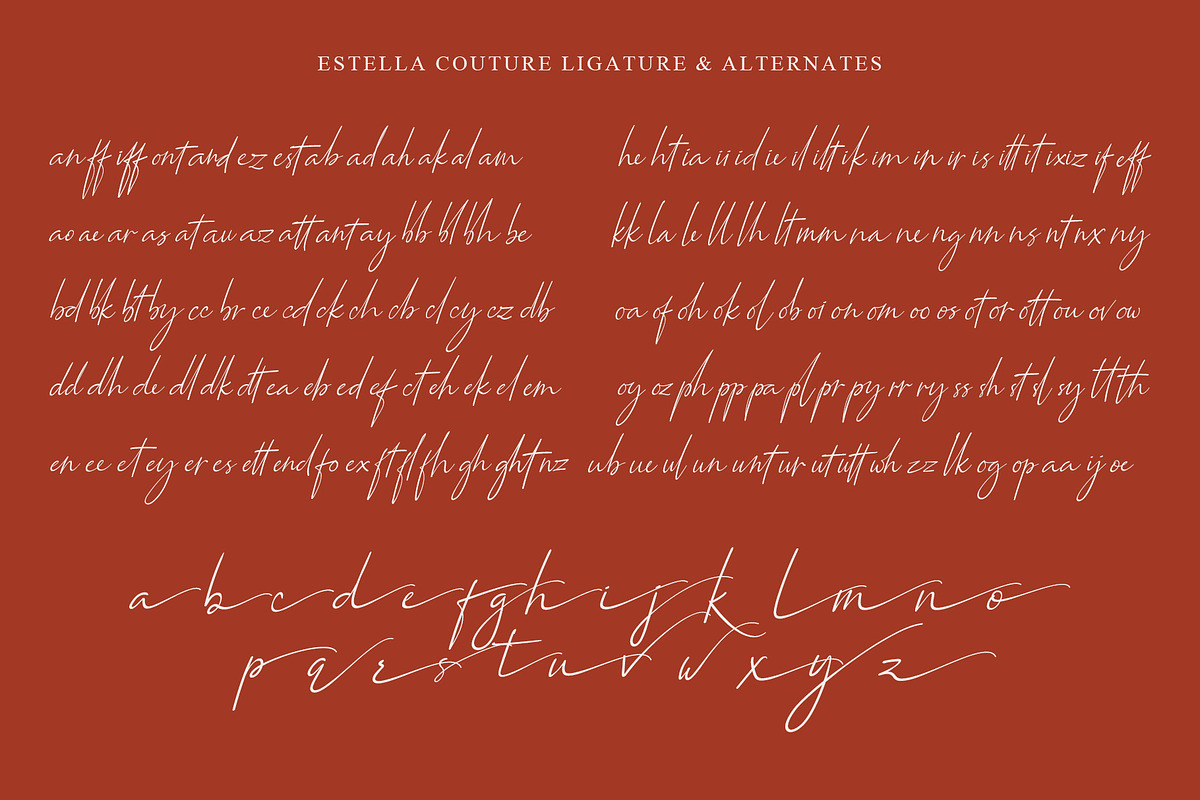 ESTELLA COUTURE LIGATURE & ALTERNATES
an ff iff ont and ez est ab ad ah ak al am
ao ae ar as at au az att ant ay bb bl bh be
bd bk bt by cc br ce cd ck ch cb cl cy cz db
dd dh de dl dk dt ea eb ed ef ct eh ek el em
en ee et ey er es ett end fo ex ft fl fh gh ght nz
he ht ia ii id ie il ilt ik im in ir is itt it ix iz if eff
kk la le ll lh lt mm na ne ng nn ns nt nx ny
oa of oh ok ol ob oi on om oo os ot or ott ou ov ow
oy oz ph pp pa pl pr py rr ry ss sh st sl sy tt th
ub ue ul un unt ur ut utt wh zz lk og op aa ij oe
a b c d e f g h i j k l m n o
p q r s t u v w x y z